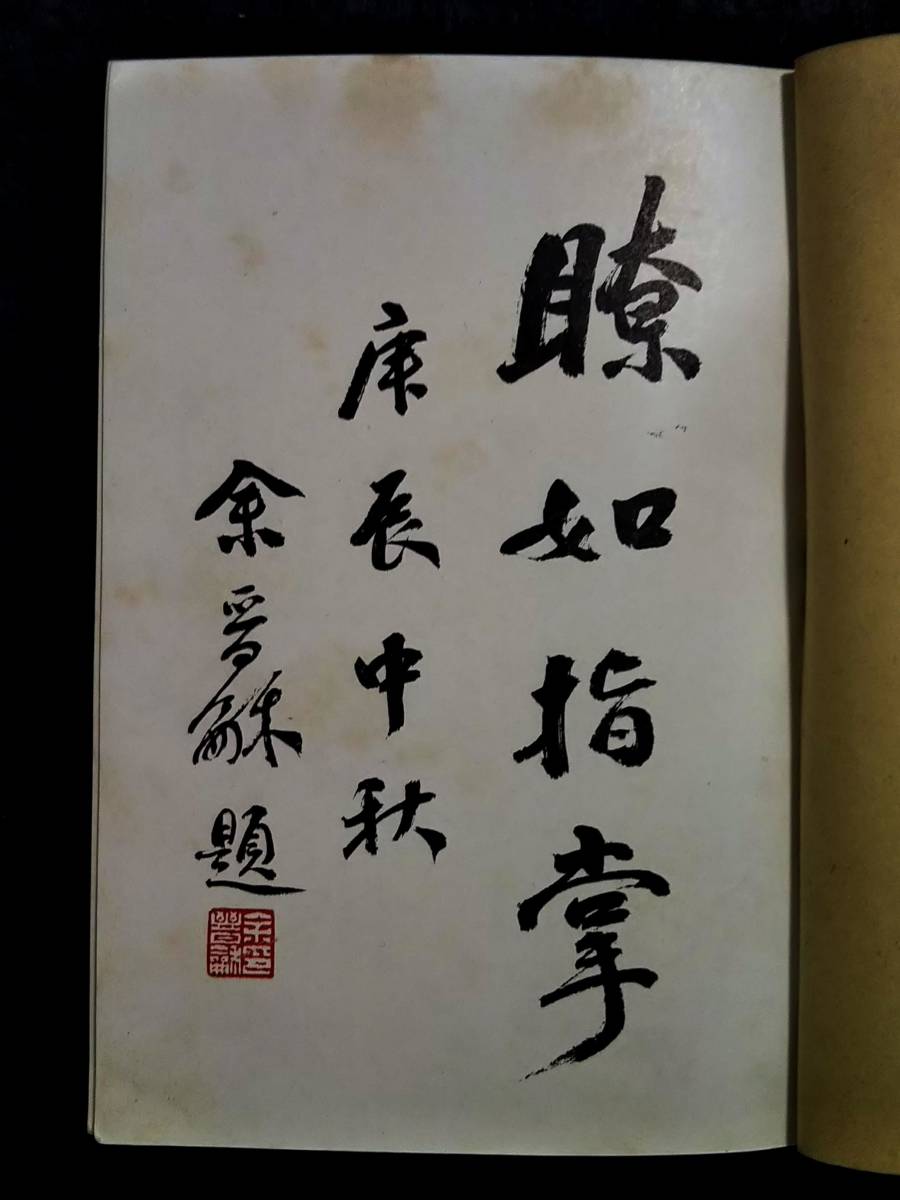 瞭如指掌
庚辰中秋
余晋龢題
余晉龢